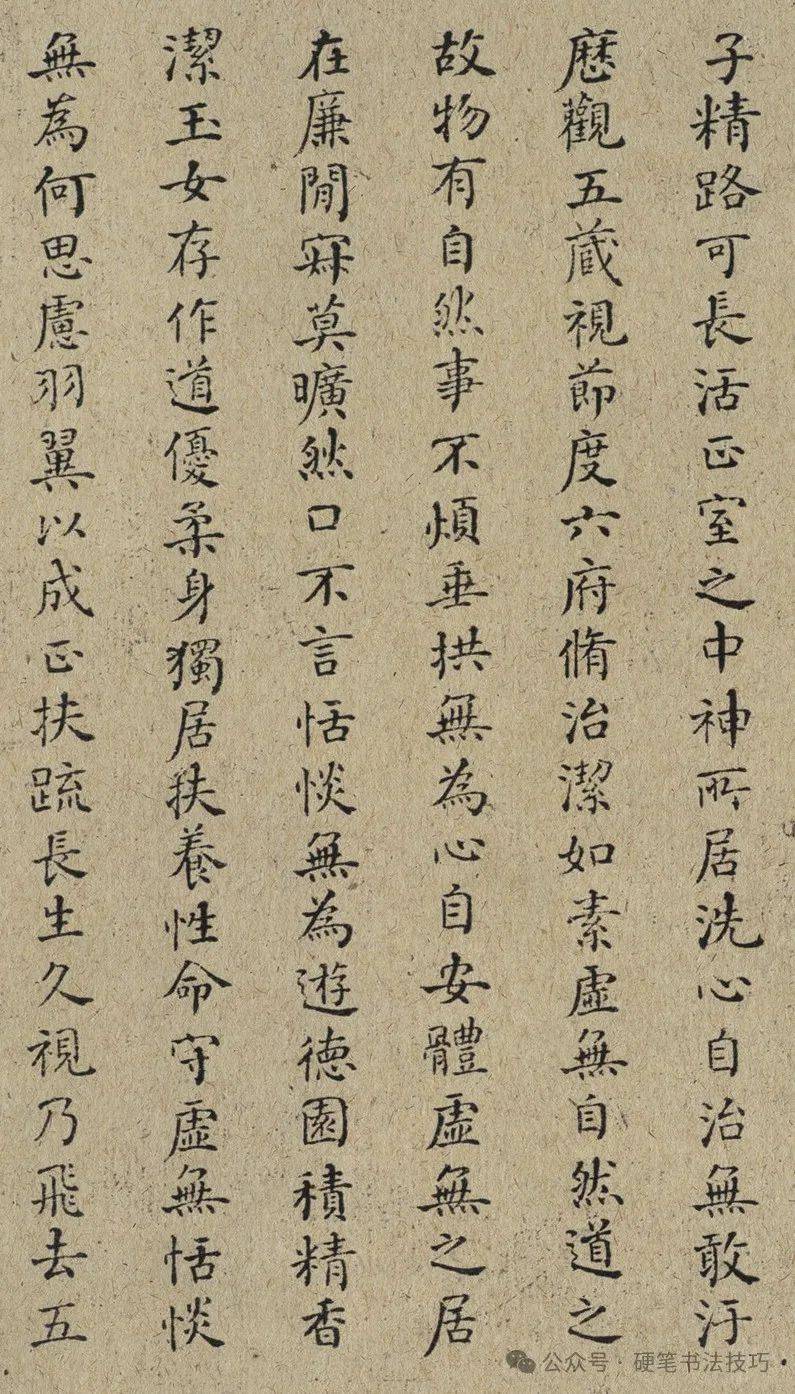 子精路可長活正室之中神所居洗心自治無敢汙
歷觀五藏視節度六府脩治潔如素虛無自然道之
故物有自然事不煩垂拱無為心自安體虛無之居
在廉閒寂莫曠然口不言恬惔無為遊德園積精香
潔玉女存作道優柔身獨居扶養性命守虛無恬惔
無為何思慮羽翼以成正扶疏長生久視乃飛去五
公众号·硬笔书法技巧